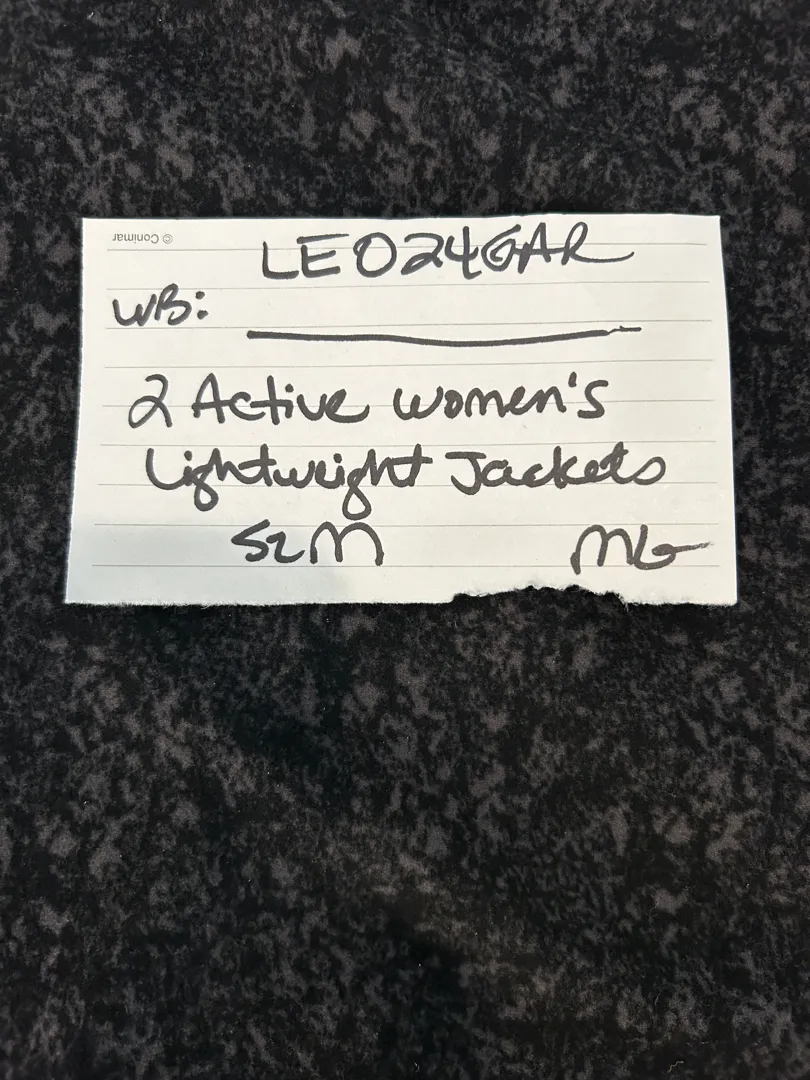 © Conimar
LEO24GAR
WB:
2 Active Women's
Lightweight Jackets
SZ M MG